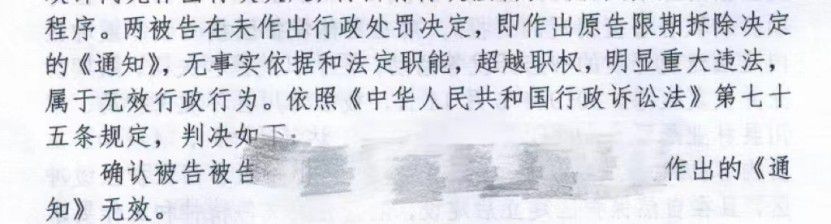 程序。两被告在未作出行政处罚决定，即作出原告限期拆除决定
的《通知》，无事实依据和法定职能，超越职权，明显重大违法，
属于无效行政行为。依照《中华人民共和国行政诉讼法》第七十
五条规定，判决如下：
确认被告被告 作出的《通
知》无效。